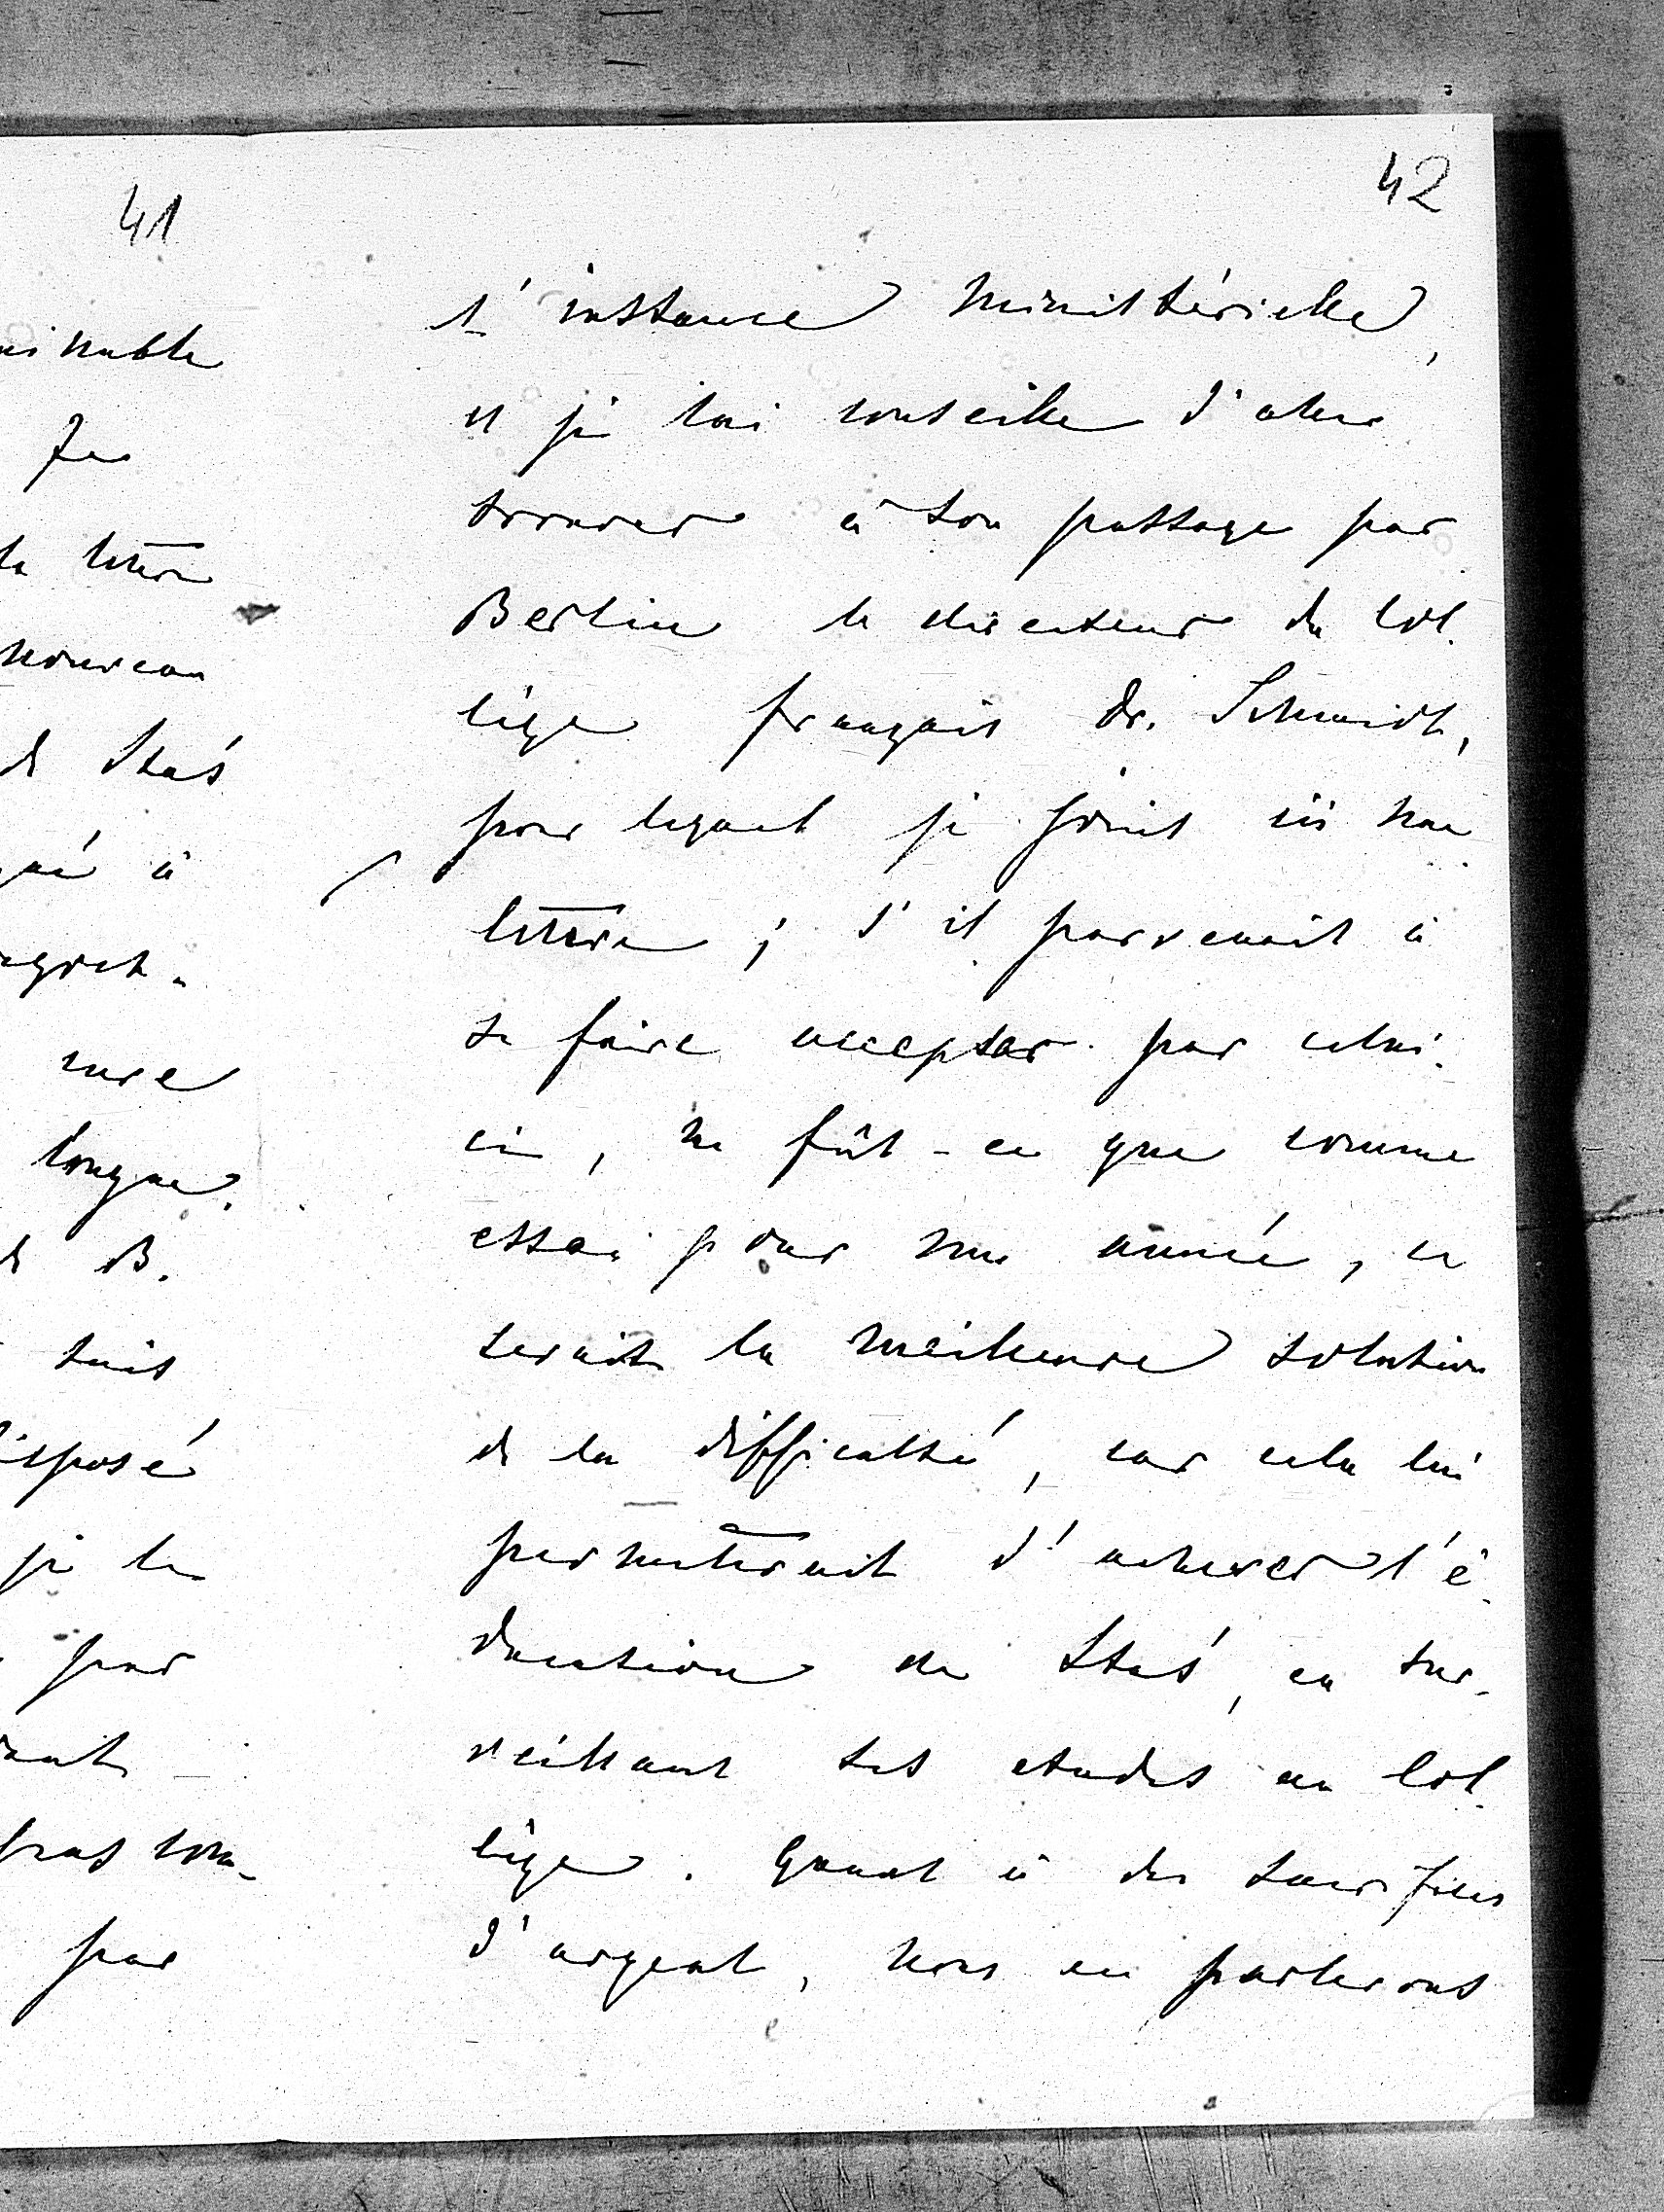 41
nouveau
de Staś
longue.
de B.
suis
disposé
je le
par
par
42
l'instance ministérielle,
et je lui conseille d'aller
trouver à son passage par
Berlin le directeur du Col-
lège français Dr. Schmidt,
pour lequel je joins ici une
lettre ; s'il parvenait à
se faire accepter par celui-
ci, ne fût-ce que comme
essai pour une année, ce
serait la meilleure solution
de la difficulté, car cela lui
permettrait d'achever l'é-
ducation de Staś, en sur-
veillant ses etudes au Col-
lège. Quant à des sacrifices
d'argent, nous en parlerons